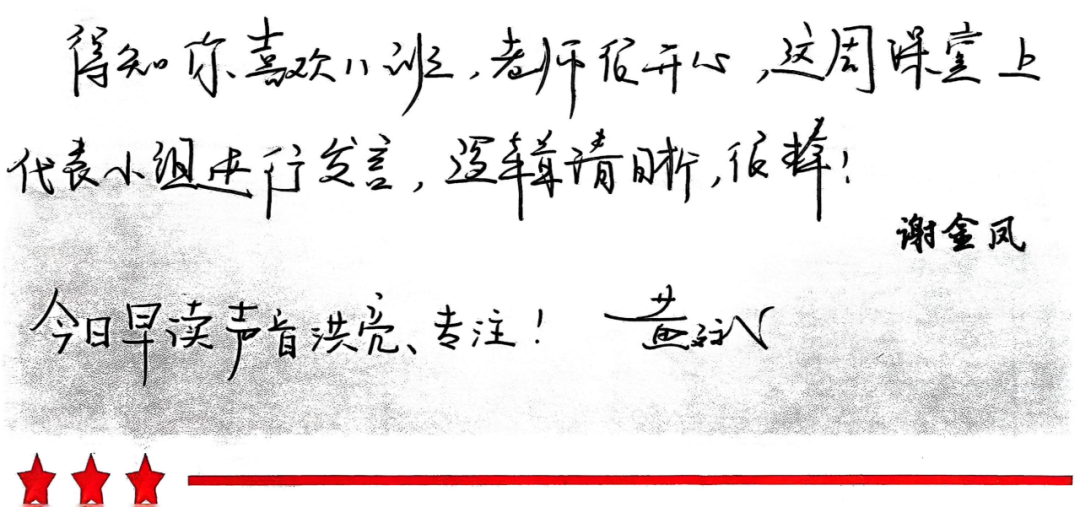 得知你喜欢八班,老师很开心,这周课堂上
代表小组进行发言,逻辑清晰,很棒!
谢金凤
今日早读声音洪亮、专注! 黄